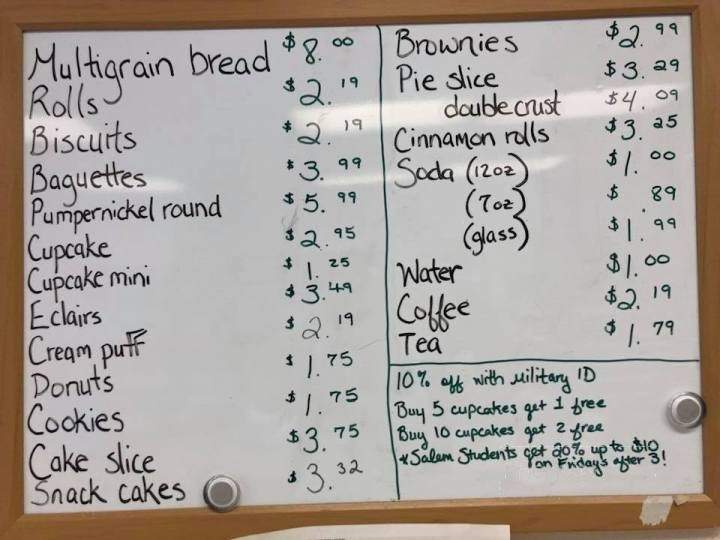 Multigrain bread $8.00
Rolls $2.19
Biscuits $2.19
Baguettes $3.99
Pumpernickel round $5.99
Cupcake $2.95
Cupcake mini $1.25
Eclairs $3.49
Cream puff $2.19
Donuts $1.75
Cookies $1.75
Cake slice $3.75
Snack cakes $3.32
Brownies $2.99
Pie slice $3.29
double crust $4.09
Cinnamon rolls $3.25
Soda (12oz) $1.00
(7oz) $ .89
(glass) $1.99
Water $1.00
Coffee $2.19
Tea $1.79
10% off with Military ID
Buy 5 cupcakes get 1 free
Buy 10 cupcakes get 2 free
*Salem Students get 20% up to $10
on Fridays after 3!